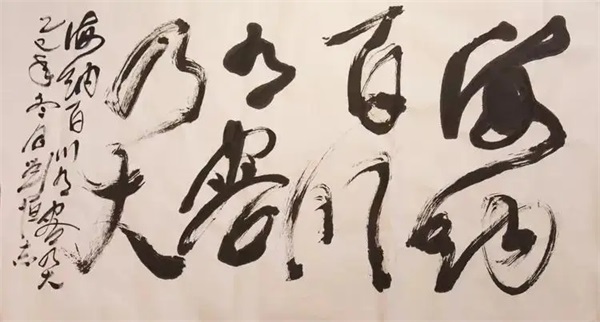 海纳
百川
有容
乃大
海纳百川有容乃大
乙巳年 日 恒志